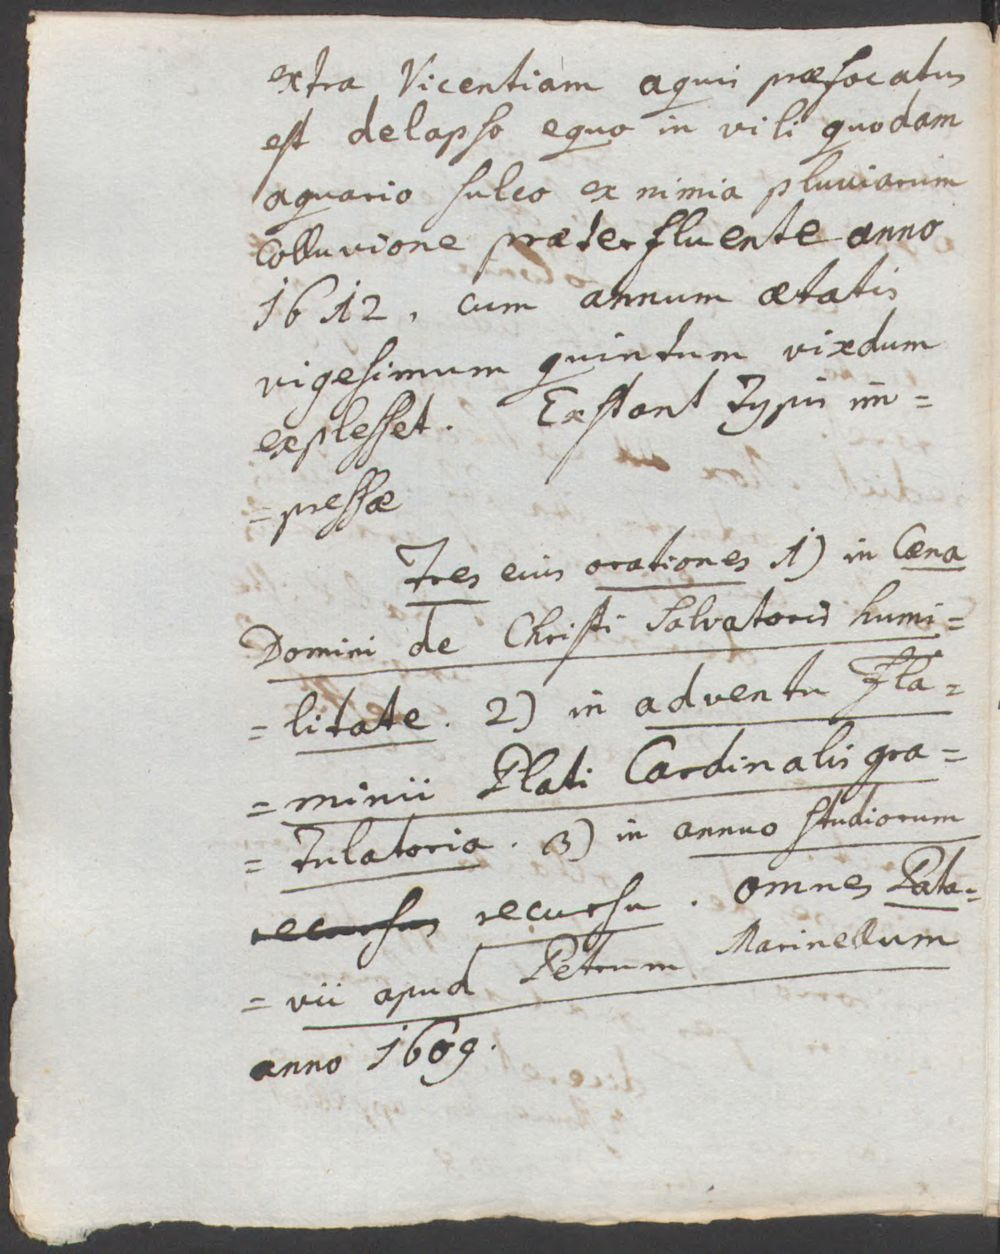 extra Vicentiam aquis præfocatus
est delapso equo in vili quodam
aquario sulco ex nimia pluviarum
Colluvione præterfluente anno
1612, cum annum ætatis
vigesimum quintum vixdum
explesset. Exstant typis im=
=pressæ
Tres eius orationes 1) in Cæna
Domini de Christi Salvatoris humi=
=litate. 2) in adventu Fla=
=minii Plati Cardinalis gra=
=tulatoria. 3) in annuo studiorum
recursus recursu. omnes Pata=
=vii apud Petrum Marinellum
anno 1609.